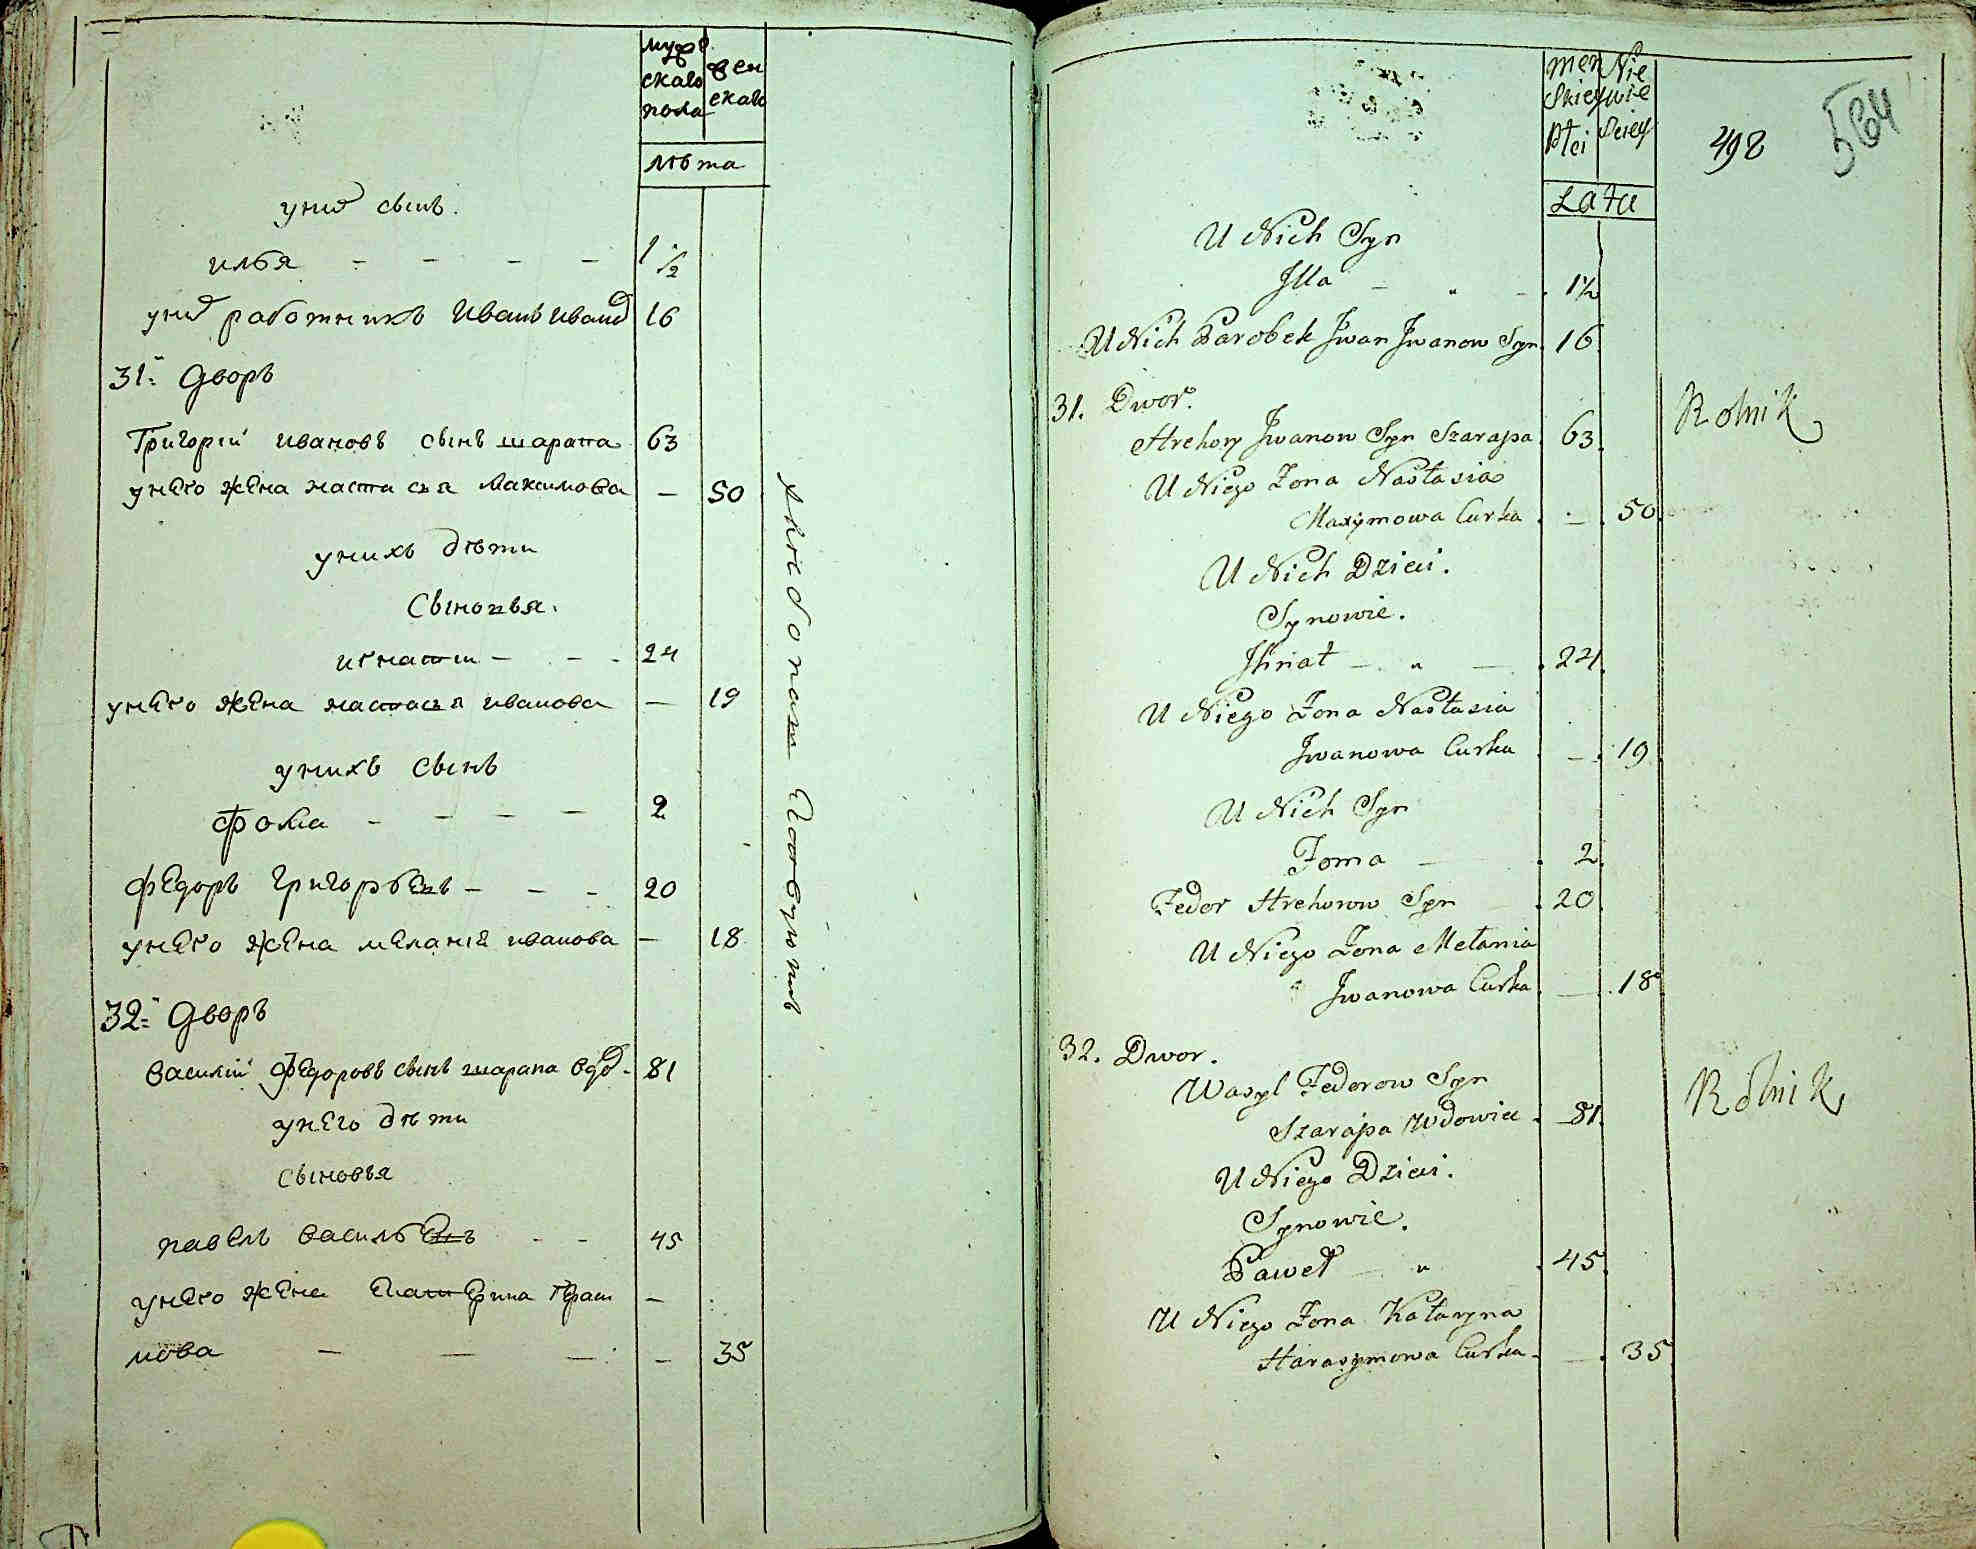 муж
скаго
пола
жен
скаго
лѣта
у них сынъ.
илья - - - - 1 1/2
у них работникъ Иванъ Иванов 16
31: Дворъ
Григорій ивановъ сынъ шарапа 63
унего жена настасья Максимова - 50
унихъ дѣти
Сыновья.
игнатъ - - - 24
унего жена настасья иванова - 19
унихъ сынъ
фома - - - - 2
федоръ григорьевъ - - - 20
унего жена меланіѣ иванова - 18
32: Дворъ
Василій Федоровъ сынъ шарапа вдов. 81
унего дѣти
сыновья
павелъ васильевъ - - 45
унего жена Екатерина Гераси -
мова - - - - 35
хлебопашцовъ
men
skiey
Płci
Nie
wie
sciey
498
564
Lata
U Nich Syn
Illa - „ - 1½
U Nich Parobek Jwan Jwanow Syn. 16
31. Dwor.
Hrehory Jwanow Syn Szarapa 63. Rolnik
U Niego Żona Nastasia
Maxymowa Curka - 50.
U Nich Dzieci.
Synowie.
Jhnat - „ - 24.
U Niego Żona Nastasia
Jwanowa Curka - 19
U Nich Syn
Foma - 2.
Fedor Hrehorow Syn - 20
U Niego Żona Mełania
Jwanowa Curka - 18
32. Dwor.
Wasyl Federow Syn
Szarapa Wdowiec 81. Rolnik
U Niego Dzieci.
Synowie.
Paweł - „ 45.
U Niego Żona Kataryna
Harasymowa Curka - 35